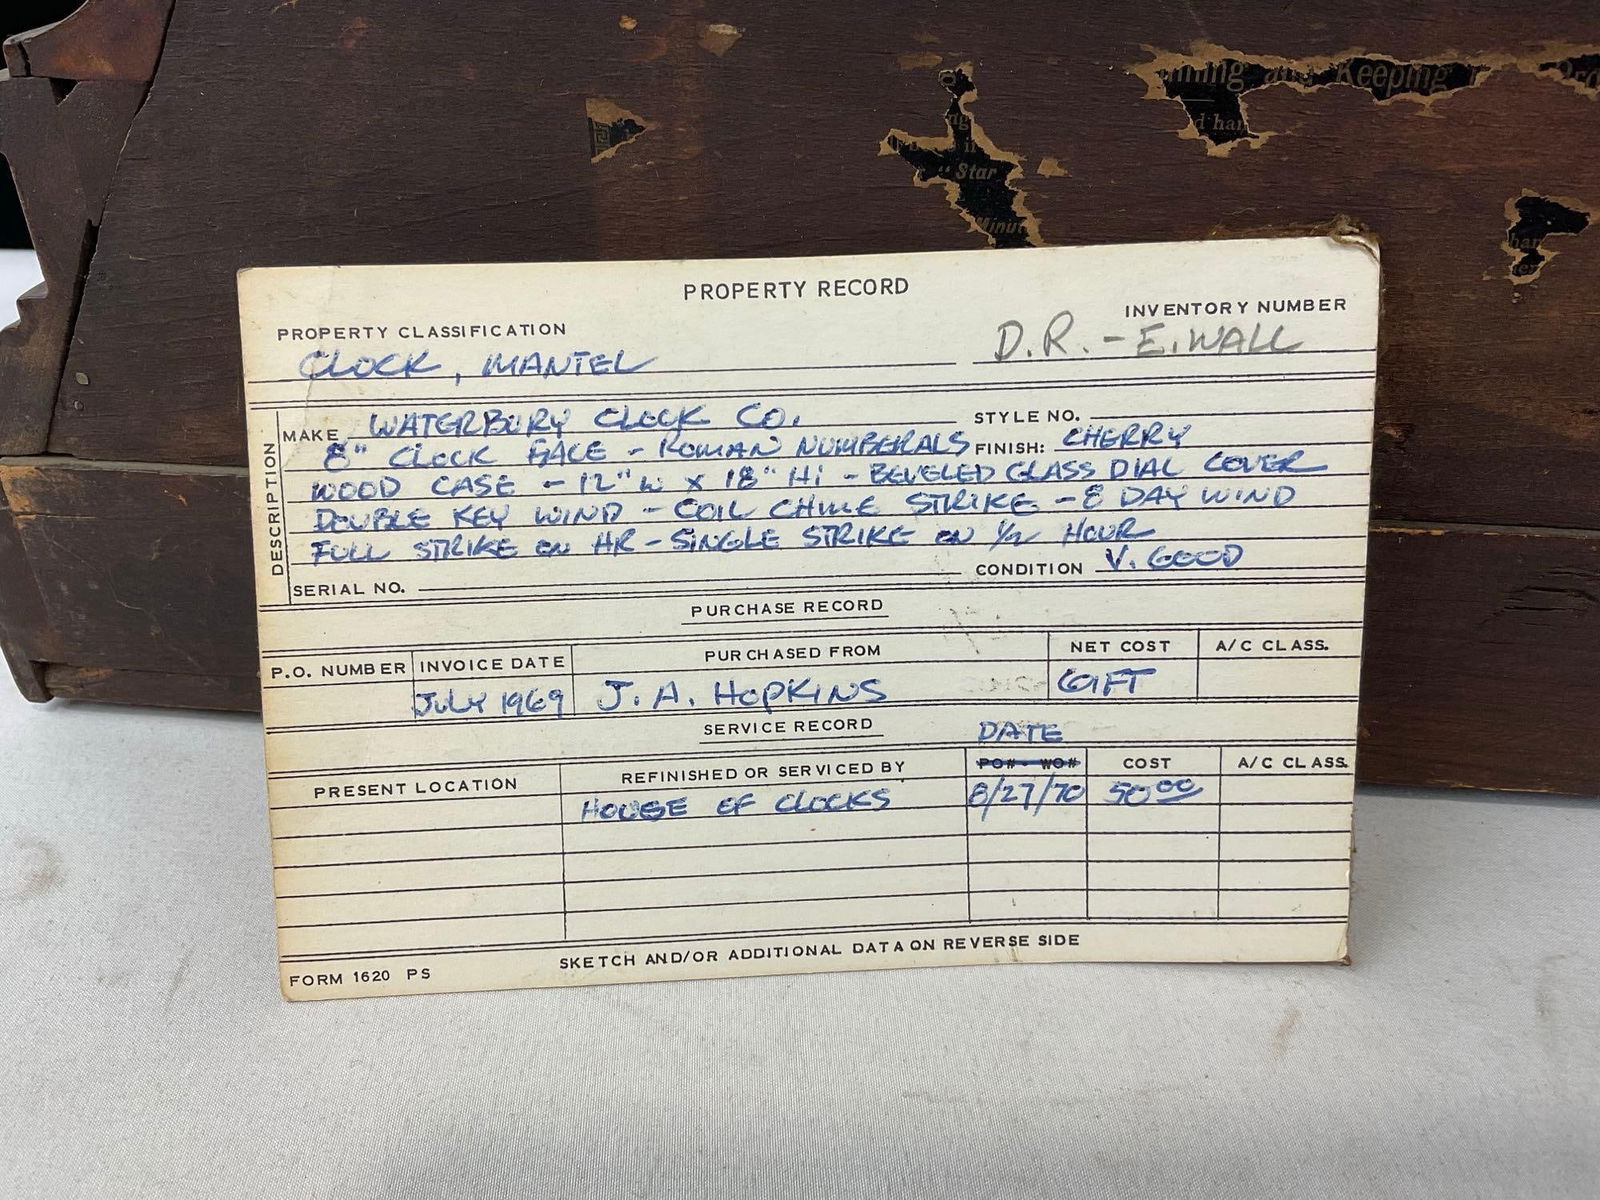 and Keeping
d han
"Star
Minut
PROPERTY RECORD
PROPERTY CLASSIFICATION
INVENTORY NUMBER
CLOCK, MANTEL
D.R. - E. WALL
DESCRIPTION
MAKE WATERBURY CLOCK CO.
STYLE NO.
8" CLOCK FACE - ROMAN NUMBERALS FINISH: CHERRY
WOOD CASE - 12" W X 18" Hi - BEVELED GLASS DIAL COVER
DOUBLE KEY WIND - COIL CHIME STRIKE - 8 DAY WIND
FULL STRIKE ON HR - SINGLE STRIKE ON 1/2 HOUR
SERIAL NO.
CONDITION V. GOOD
PURCHASE RECORD
P.O. NUMBER INVOICE DATE PURCHASED FROM NET COST A/C CLASS.
JULY 1969 J. A. HOPKINS GIFT
SERVICE RECORD DATE
PRESENT LOCATION REFINISHED OR SERVICED BY PO# - WO# COST A/C CLASS.
HOUSE OF CLOCKS 8/27/70 50 00
SKETCH AND/OR ADDITIONAL DATA ON REVERSE SIDE
FORM 1620 PS